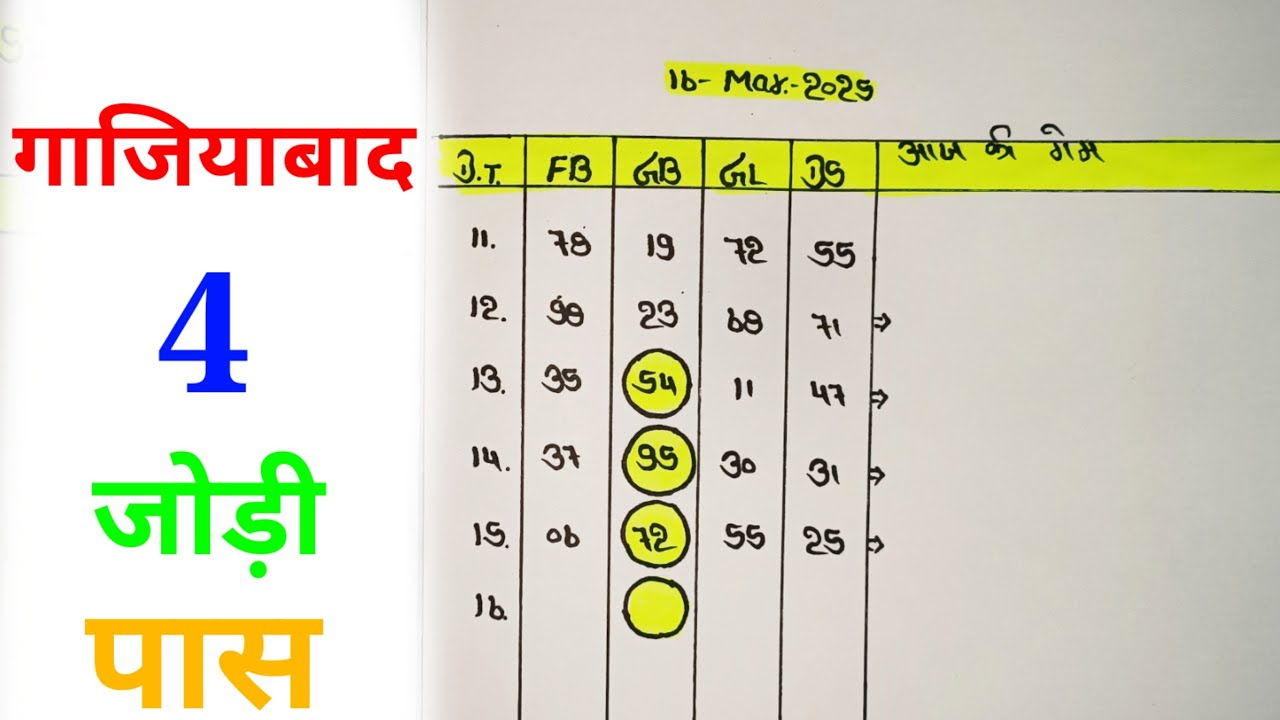 गाजियाबाद
4
जोड़ी
पास
16- Mar.-2025
D.T. FB GB GL DS आज की गेम
11. 78 19 72 55
12. 98 23 68 71 ⇒
13. 35 54 11 47 ⇒
14. 37 95 30 31 ⇒
15. 06 72 55 25 ⇒
16.